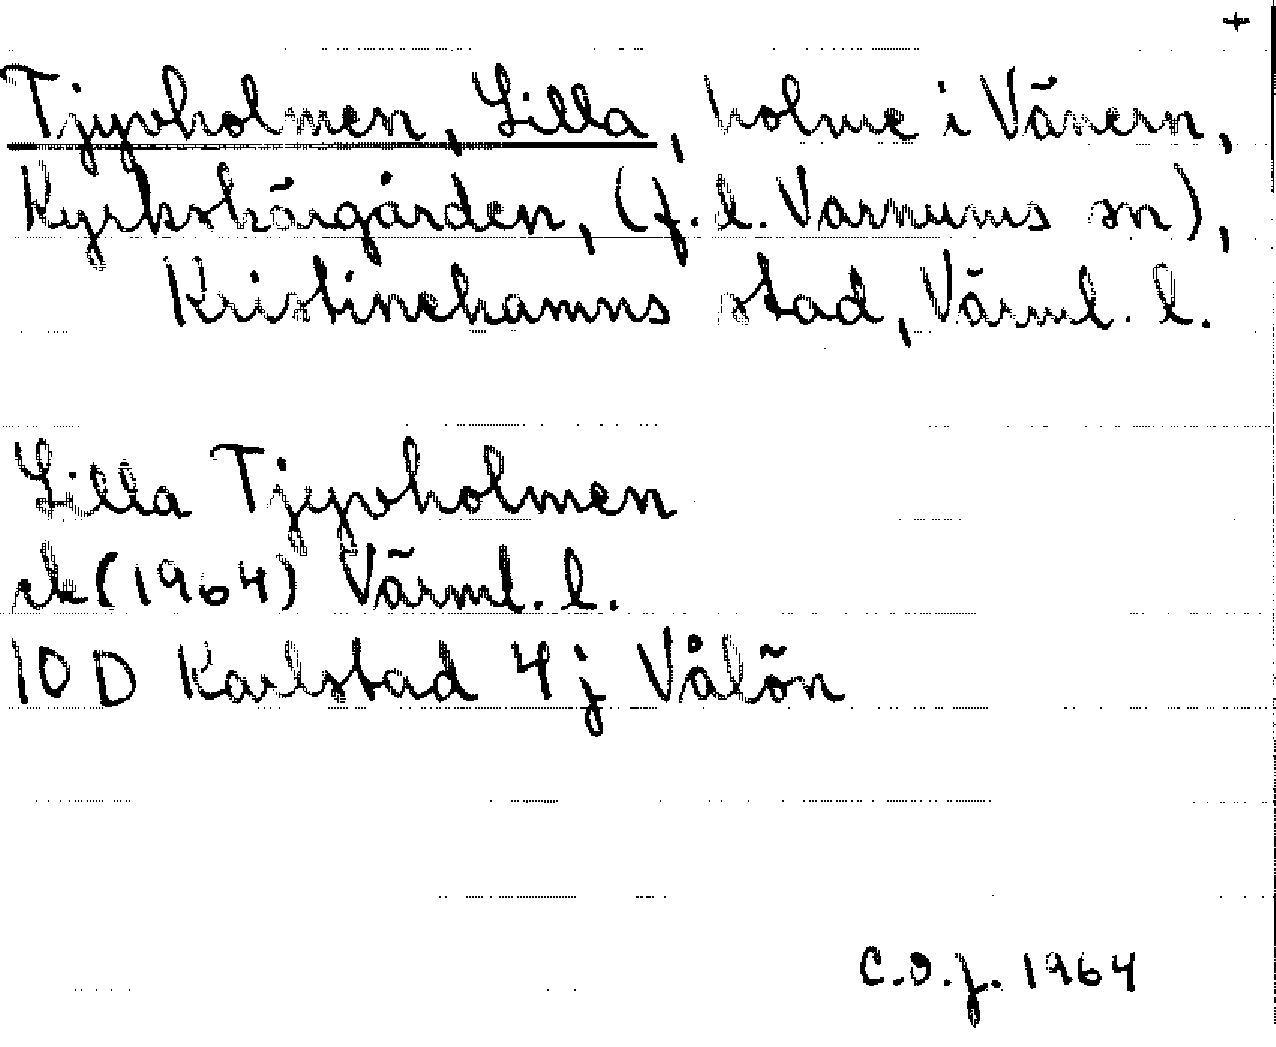 +
Tjyvholmen, Lilla, holme i Vänern,
Kyrkskärgården, (f.d. Varnums sn),
Kristinehamns stad, Värml. l.
Lilla Tjyvholmen
ek (1964) Värml. l.
10 D Karlstad 4j Vålön
C.O.J. 1964